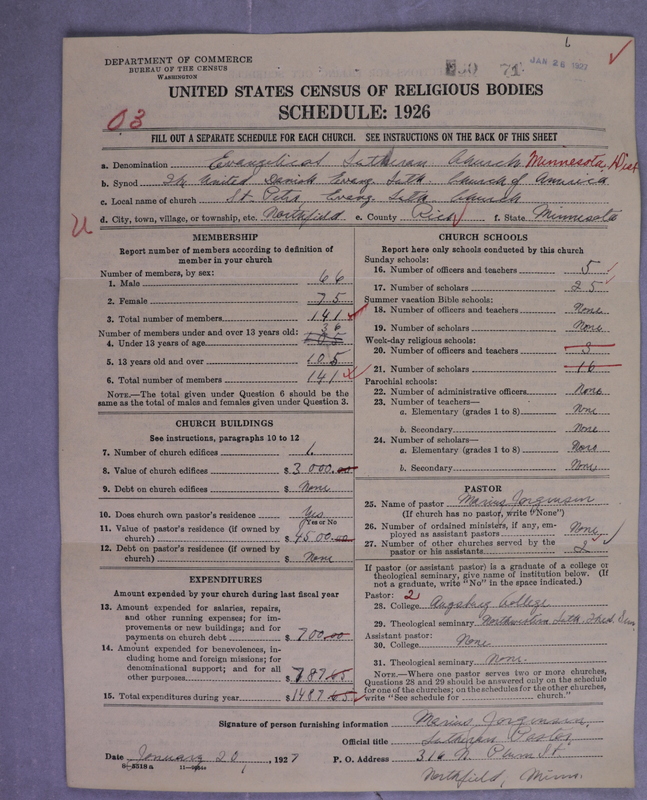 DEPARTMENT OF COMMERCE
BUREAU OF THE CENSUS
WASHINGTON
JAN 26 1927
UNITED STATES CENSUS OF RELIGIOUS BODIES
SCHEDULE: 1926
03
FILL OUT A SEPARATE SCHEDULE FOR EACH CHURCH. SEE INSTRUCTIONS ON THE BACK OF THIS SHEET
a. Denomination Evangelical Lutheran Church Minnesota Dist
b. Synod The United Danish Evang. Luth. Church of America
c. Local name of church St. Petri Evang. Luth. Church
d. City, town, village, or township, etc. Northfield e. County Rice f. State Minnesota
MEMBERSHIP
Report number of members according to definition of
member in your church
Number of members, by sex:
1. Male 66
2. Female 75
3. Total number of members 141
Number of members under and over 13 years old:
4. Under 13 years of age 36
5. 13 years old and over 105
6. Total number of members 141
NOTE.—The total given under Question 6 should be
same as the total of males and females given under Question 3.
CHURCH BUILDINGS
See instructions, paragraphs 10 to 12
7. Number of church edifices 1.
8. Value of church edifices $ 3000.00
9. Debt on church edifices $ None
10. Does church own pastor's residence? Yes
Yes or No
11. Value of pastor's residence (if owned by
church) $ 4500.00
12. Debt on pastor's residence (if owned by
church) $ None
EXPENDITURES
Amount expended by your church during last fiscal year
13. Amount expended for salaries, repairs,
and other running expenses; for im-
provements or new buildings; and for
payments on church debt $ 700.00
14. Amount expended for benevolences, in-
cluding home and foreign missions; for
denominational support; and for all
other purposes $ 787.65
15. Total expenditures during year $ 1487.65
CHURCH SCHOOLS
Report here only schools conducted by this church
Sunday schools:
16. Number of officers and teachers 5
17. Number of scholars 25
Summer vacation Bible schools:
18. Number of officers and teachers None
19. Number of scholars None
Week-day religious schools:
20. Number of officers and teachers 3
21. Number of scholars 16
Parochial schools:
22. Number of administrative officers None
23. Number of teachers—
a. Elementary (grades 1 to 8) None
b. Secondary None
24. Number of scholars—
a. Elementary (grades 1 to 8) None
b. Secondary None
PASTOR
25. Name of pastor Marius Jorgensen
(If church has no pastor, write "None")
26. Number of ordained ministers, if any, em-
ployed as assistant pastors None
27. Number of other churches served by the
pastor or his assistants 2
If pastor (or assistant pastor) is a graduate of a college or
theological seminary, give name of institution below. (If
not a graduate, write "No" in the space indicated.)
Pastor: 2
28. College Augsburg College
29. Theological seminary Northwestern Luth. Theol. Sem
Assistant pastor:
30. College None
31. Theological seminary None.
NOTE.—Where one pastor serves two or more churches,
Questions 28 and 29 should be answered only on the schedule
for one of the churches; on the schedules for the other churches,
write "See schedule for church."
Signature of person furnishing information Marius Jorgensen
Official title Lutheran Pastor
Date January 20, 1927 P. O. Address 316 N. Plum St.
Northfield, Minn.